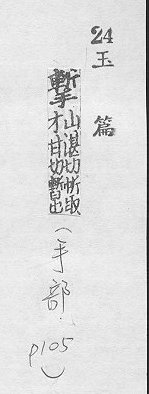 24
玉篇
山湛切斬取
才甘切暫出
(手部. p105)